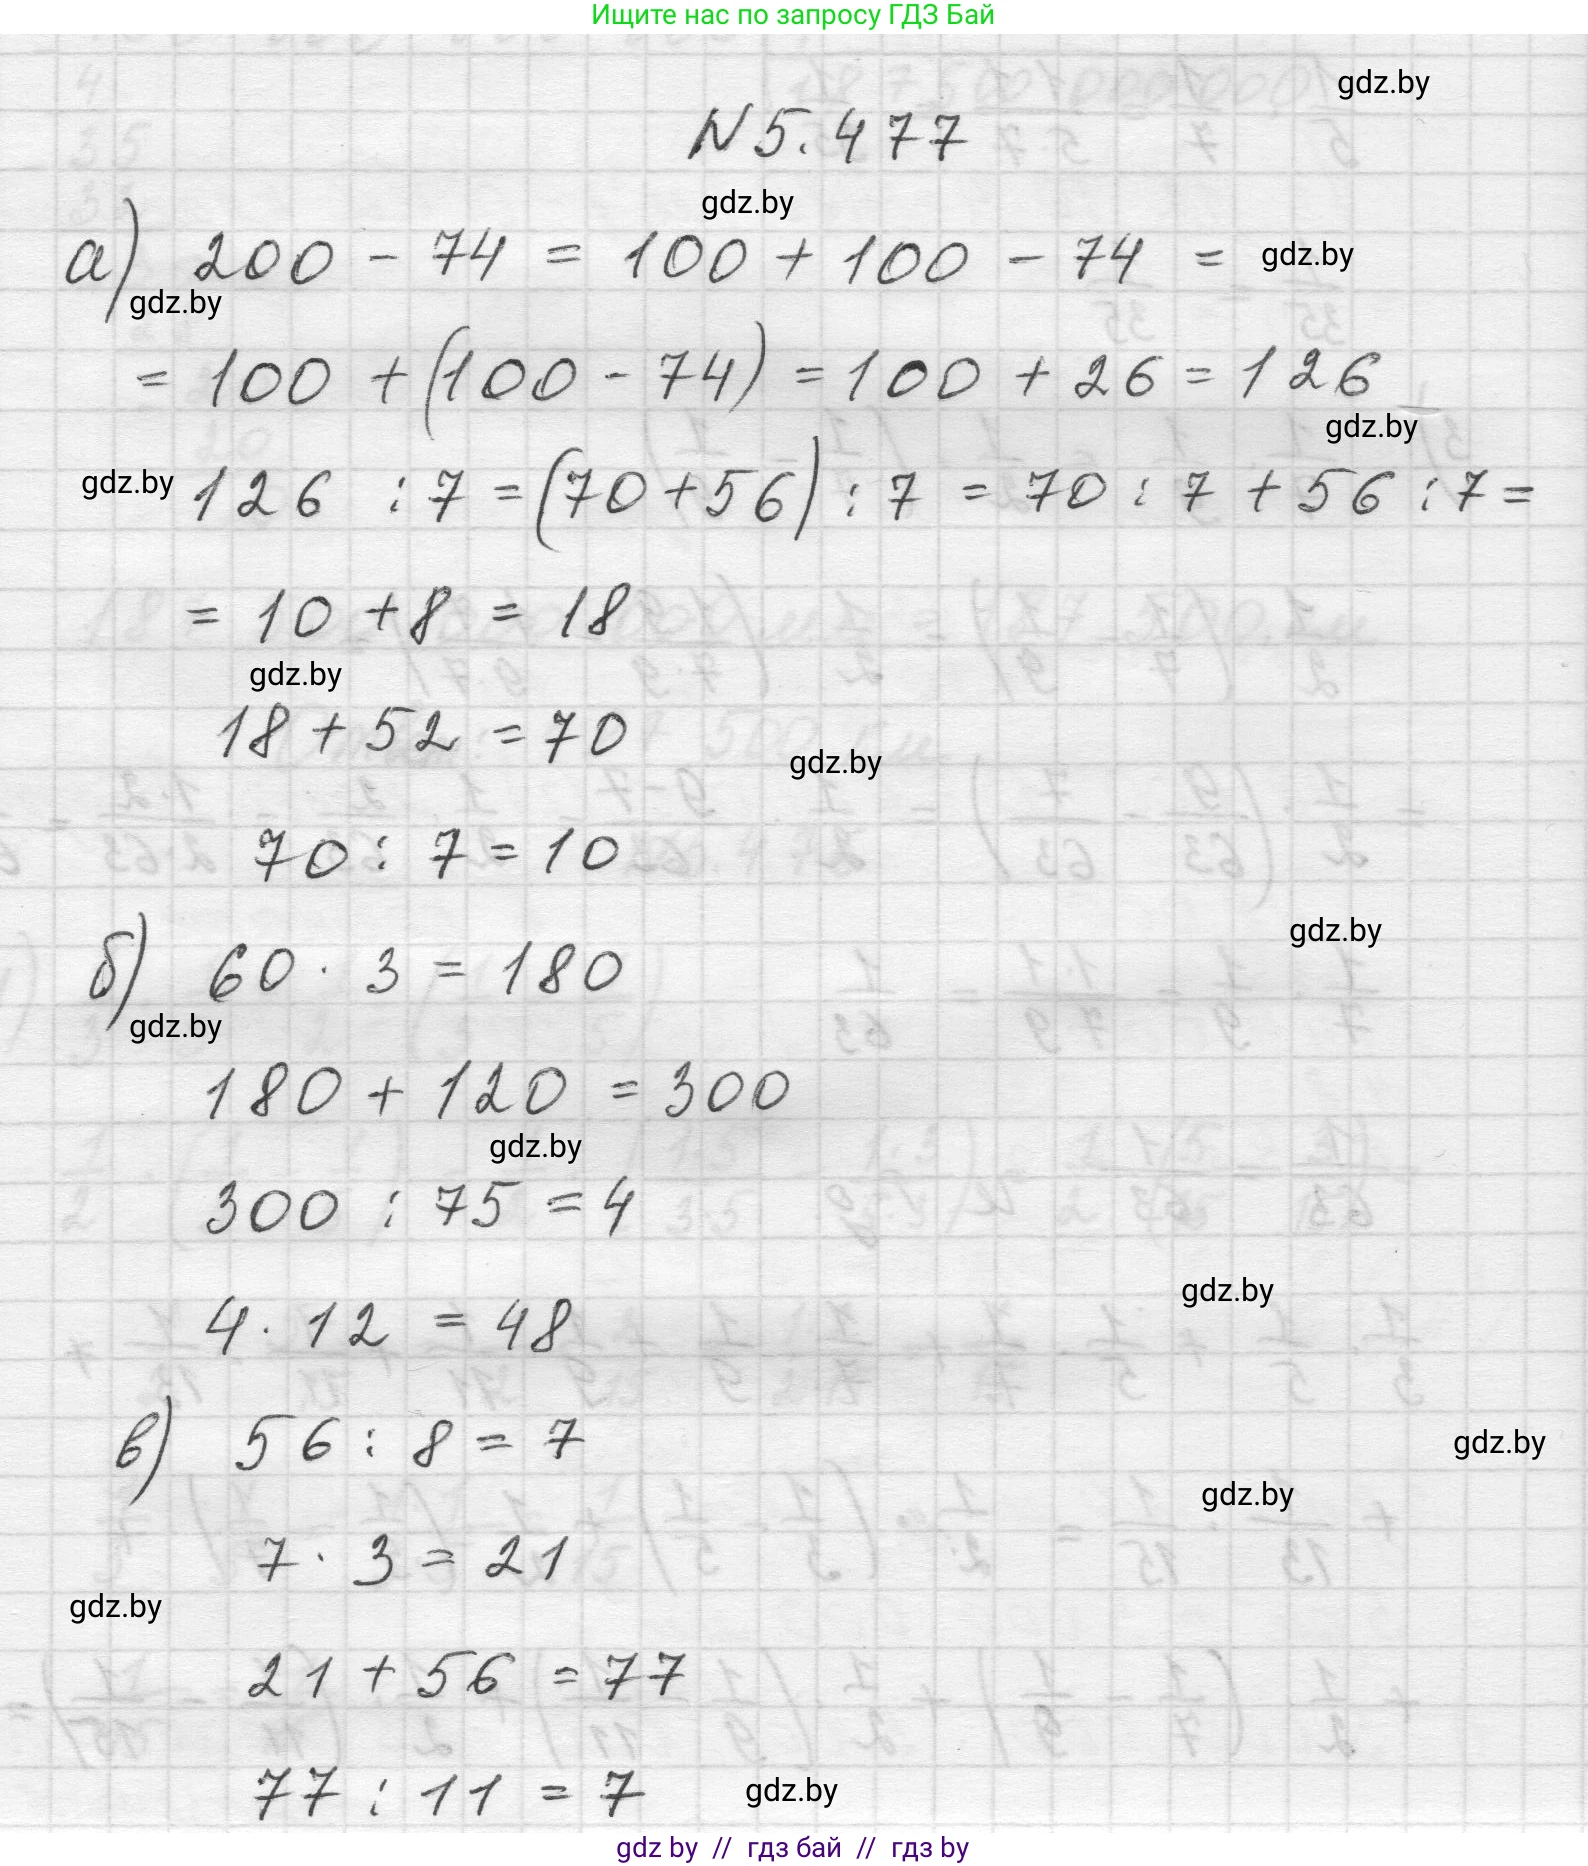 Ищите нас по запросу ГДЗ Бай
gdz.by
N 5.477
gdz.by
а) 200 - 74 = 100 + 100 - 74 =
gdz.by
gdz.by
= 100 + (100 - 74) = 100 + 26 = 126
gdz.by
gdz.by
126 : 7 = (70 + 56) : 7 = 70 : 7 + 56 : 7 =
= 10 + 8 = 18
gdz.by
18 + 52 = 70
gdz.by
70 : 7 = 10
gdz.by
б) 60 · 3 = 180
gdz.by
180 + 120 = 300
gdz.by
300 : 75 = 4
gdz.by
4 · 12 = 48
в) 56 : 8 = 7
gdz.by
gdz.by
7 · 3 = 21
gdz.by
21 + 56 = 77
77 : 11 = 7
gdz.by
gdz by // гдз бай // гдз by